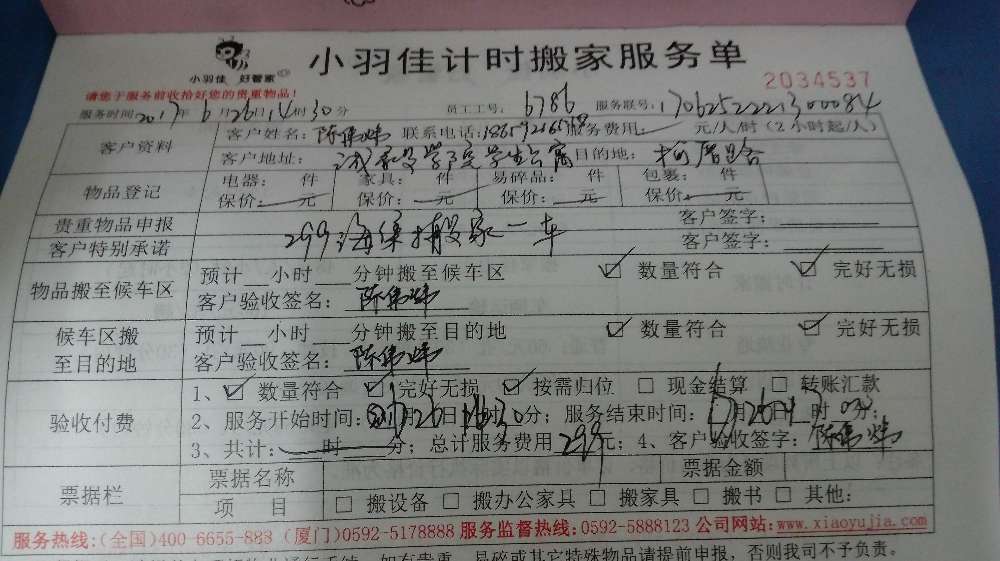 小羽佳计时搬家服务单
小羽佳 好管家
2034537
请您于服务前收拾好您的贵重物品!
服务时间2017年6月26日14时30分 员工工号: 6786 服务联号: 1706252221300084
客户资料 客户姓名: 陈伟炜 联系电话: 服务费用: 元/人/时(2小时起/人)
客户地址: 诚毅学院学生公寓 目的地:
物品登记 电器: 件 家具: 件 易碎品: 件 包裹: 件
保价: 元 保价: 元 保价: 元 保价: 元
贵重物品申报 客户签字:
客户特别承诺 299海绵搬家一车 客户签字:
物品搬至候车区 预计__小时___分钟搬至候车区 ☑ 数量符合 ☑ 完好无损
客户验收签名: 陈伟炜
候车区搬至目的地 预计__小时___分钟搬至目的地 ☑ 数量符合 ☑ 完好无损
客户验收签名: 陈伟炜
验收付费 1、☑ 数量符合 ☑ 完好无损 ☑ 按需归位 □ 现金结算 □ 转账汇款
2、服务开始时间: 月26日 时30分; 服务结束时间: 月26日17时0分;
3、共计: 时 分; 总计服务费用299元; 4、客户验收签字: 陈伟炜
票据栏 票据名称 票据金额
项 目 □ 搬设备 □ 搬办公家具 □ 搬家具 □ 搬书 □ 其他:
服务热线:(全国)400-6655-888 (厦门)0592-5178888 服务监督热线:0592-5888123 公司网站:www.xiaoyujia.com
如有贵重、易碎或其它特殊物品请提前申报,否则我司不予负责。